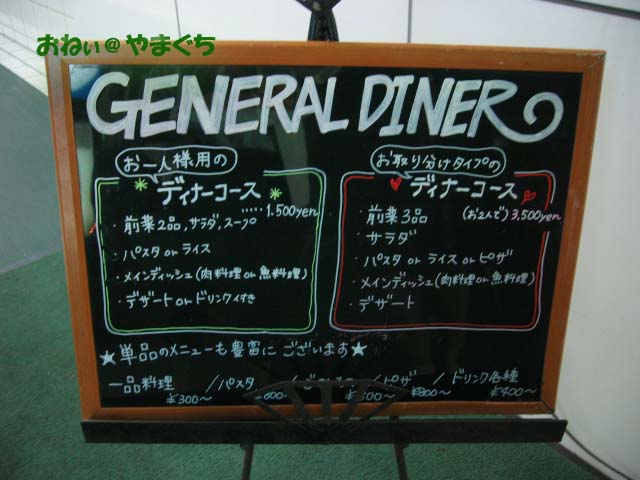 おねぃ@やまぐち
GENERAL DINER
お一人様用の
ディナーコース
.....1.500yen
・前菜2品,サラダ,スープ
・パスタ or ライス
・メインディッシュ(肉料理 or 魚料理)
・デザート or ドリンク付き
お取り分けタイプの
ディナーコース
・前菜3品 (お2人で) 3,500yen
・サラダ
・パスタ or ライス or ピザ
・メインディッシュ(肉料理 or 魚料理)
・デザート
★単品のメニューも豊富にございます★
一品料理 /パスタ / /ピザ /ドリンク各種
¥300〜 ¥800〜 ¥400〜